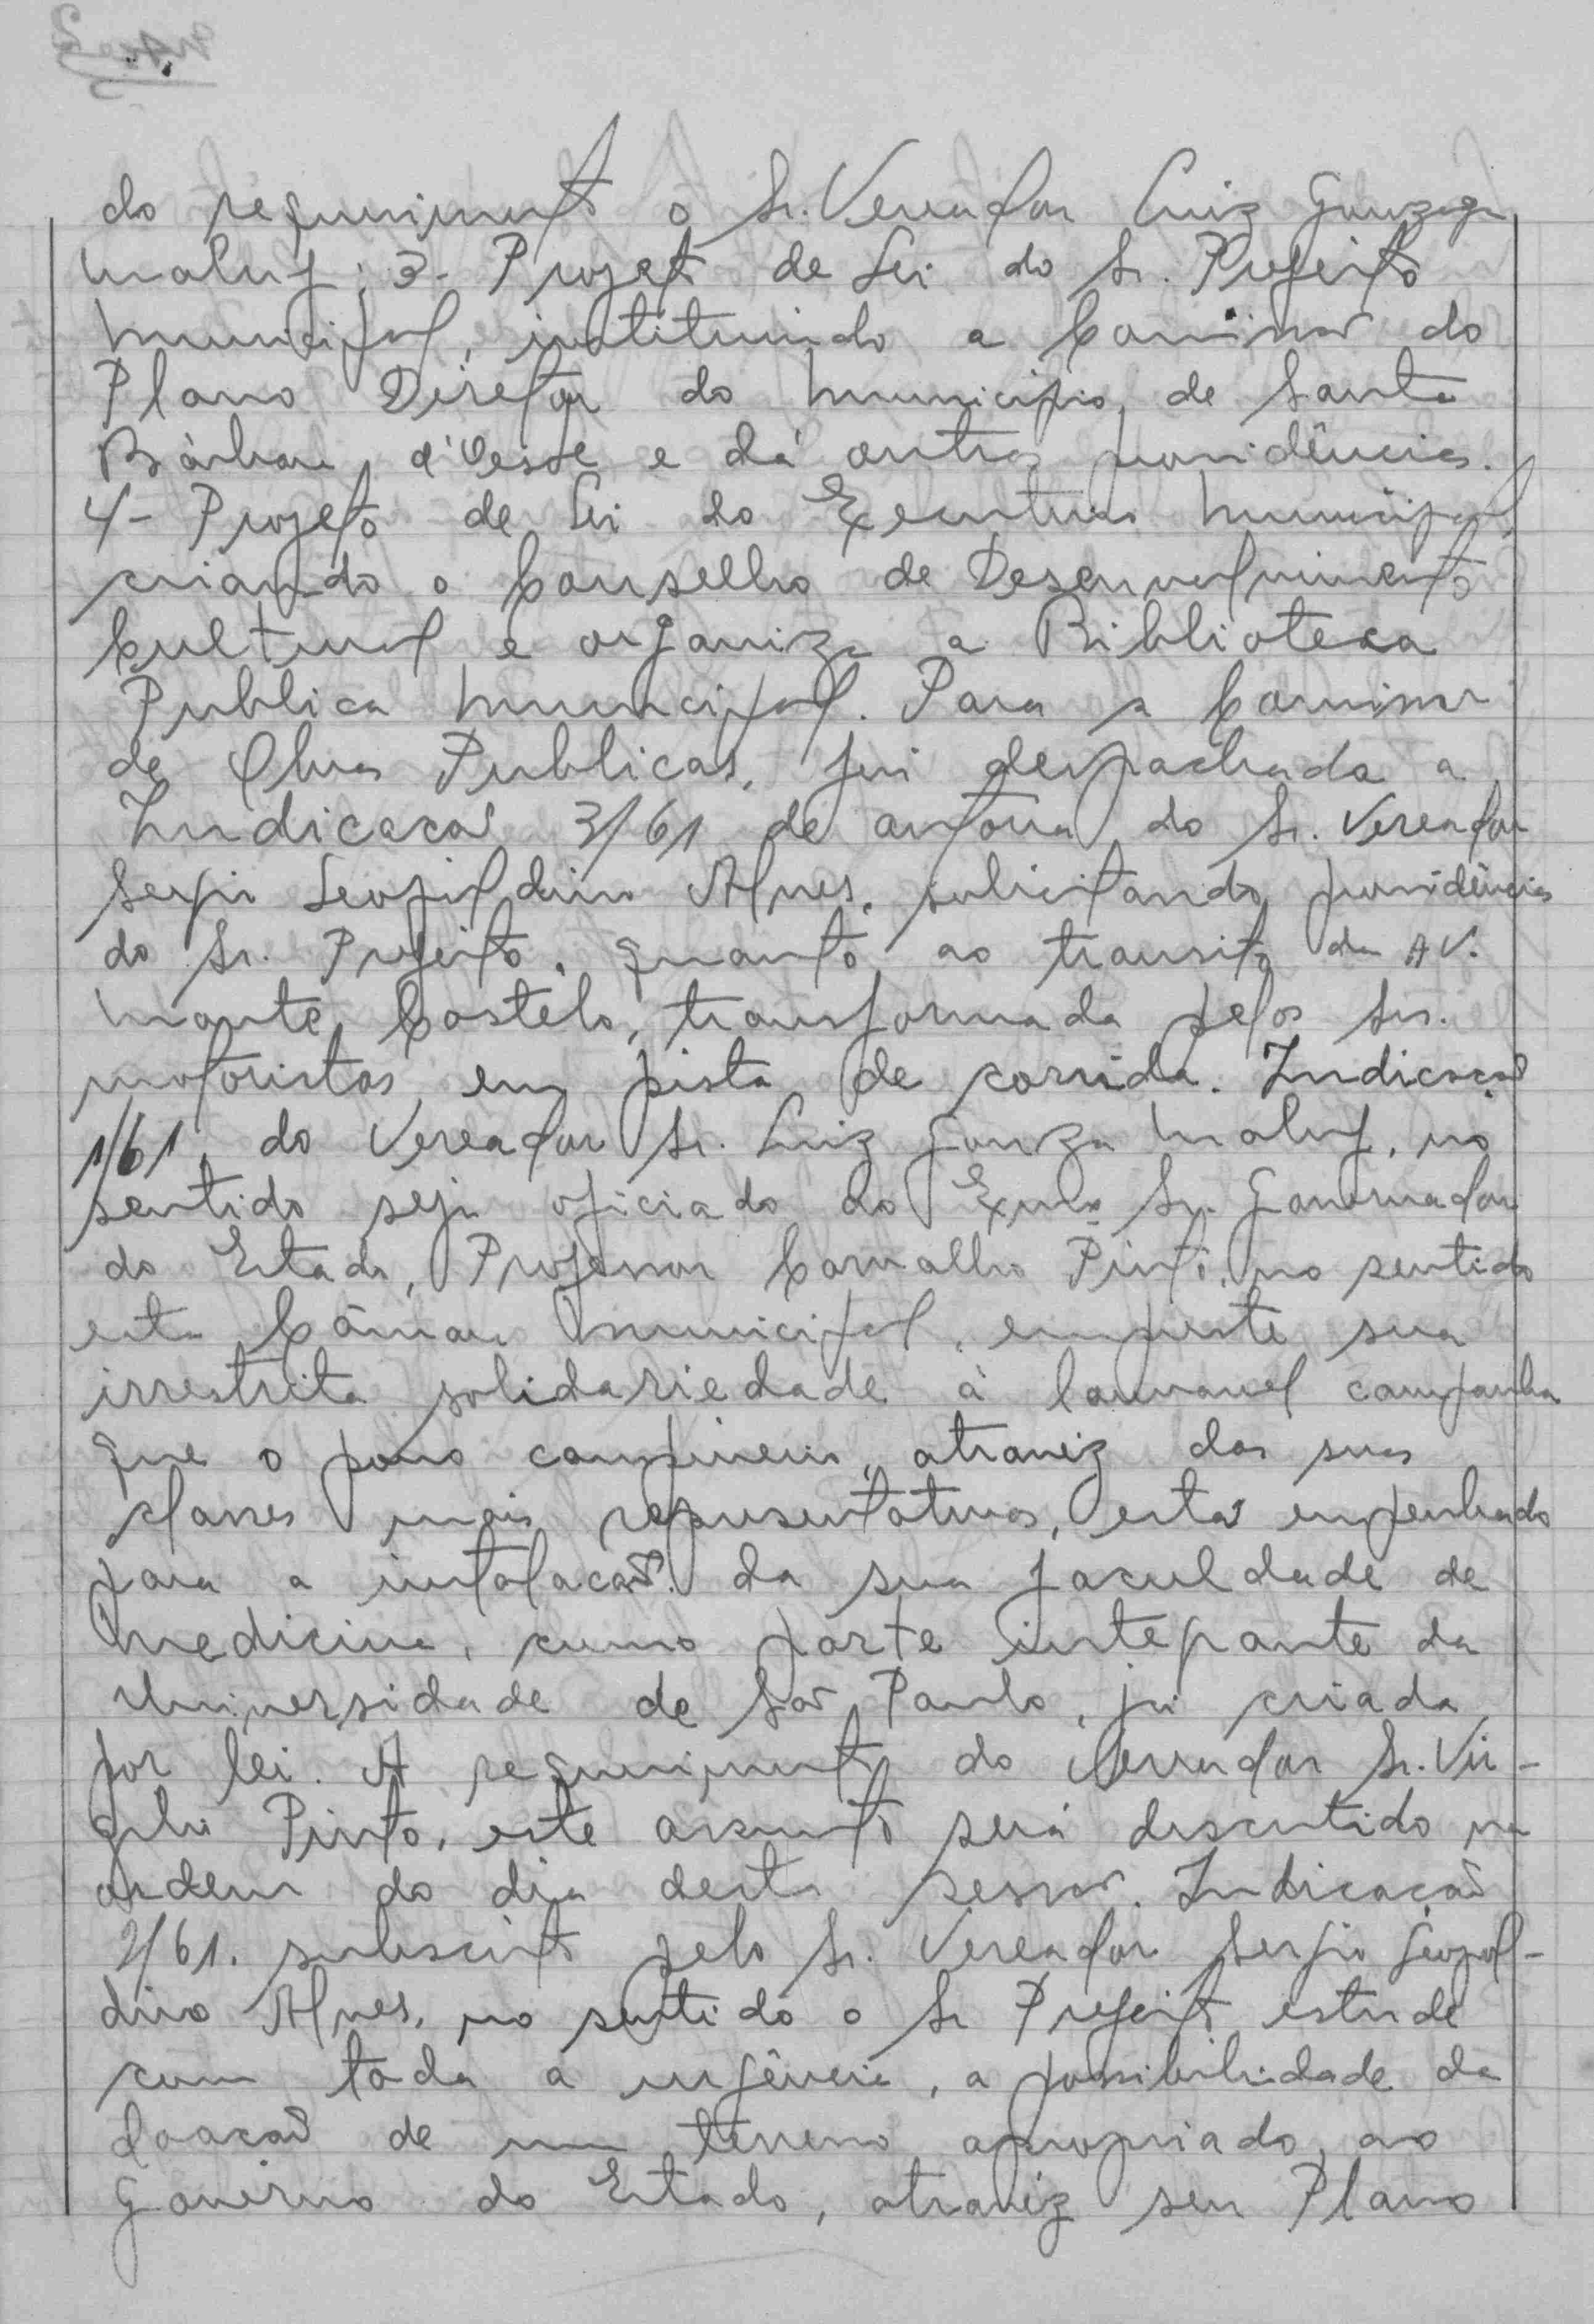 do requerimento o Sr. Vereador Luiz Gonzaga
Maluf; 3- Projeto de Lei do Sr. Prefeito
Municipal, instituindo a Comissão do
Plano Diretor do Municipio de Santa
Bárbara d'Oeste e dá outras providências.
4- Projeto de Lei do Executivo Municipal,
criando o Conselho de Desenvolvimento
Cultural e organiza a Biblioteca
Publica Municipal. Para a Comissão
de Obras Publicas, foi despachada a
Indicacão 3/61 de autoria do Sr. Vereador
Sergio Leopoldino Alves, solicitando providências
do Sr. Prefeito, quanto ao transito da AV.
Monte Castelo, transformada pelos Srs.
motoristas em pista de corrida. Indicação
1/61, do Vereador Sr. Luiz Gonzaga Maluf, no
sentido seja oficiado ao Exmo Sr. Governador
do Estado, Professor Carvalho Pinto, no sentido
esta Câmara Municipal, empreste sua
irrestrita solidariedade à louvavel campanha
que o povo campineiro, atravez das suas
classes mais representativas, está empenhado
para a instalacão da sua faculdade de
Medicina, como parte integrante da
Universidade de São Paulo, já criada
por lei. A requerimento do Vereador Sr. Vir-
gilio Pinto, este assunto será descutido na
ordem do dia desta sessão. Indicação
2/61. subscrito pelo Sr. Vereador Sergio Leopol-
dino Alves, no sentido o Sr Prefeito estude
com toda a urgência, a possibilidade da
doacão de um terreno apropriado, ao
Govêrno do Estado, atravéz seu Plano